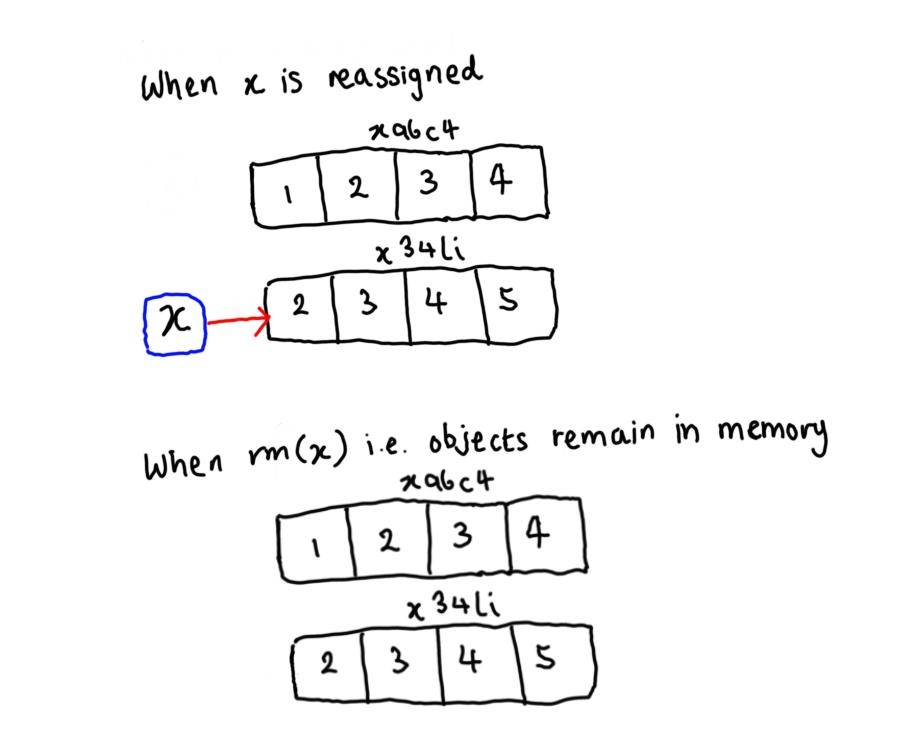 When x is reassigned
xabc4
1 2 3 4
x34li
2 3 4 5
x
When rm(x) i.e. objects remain in memory
xabc4
1 2 3 4
x34li
2 3 4 5